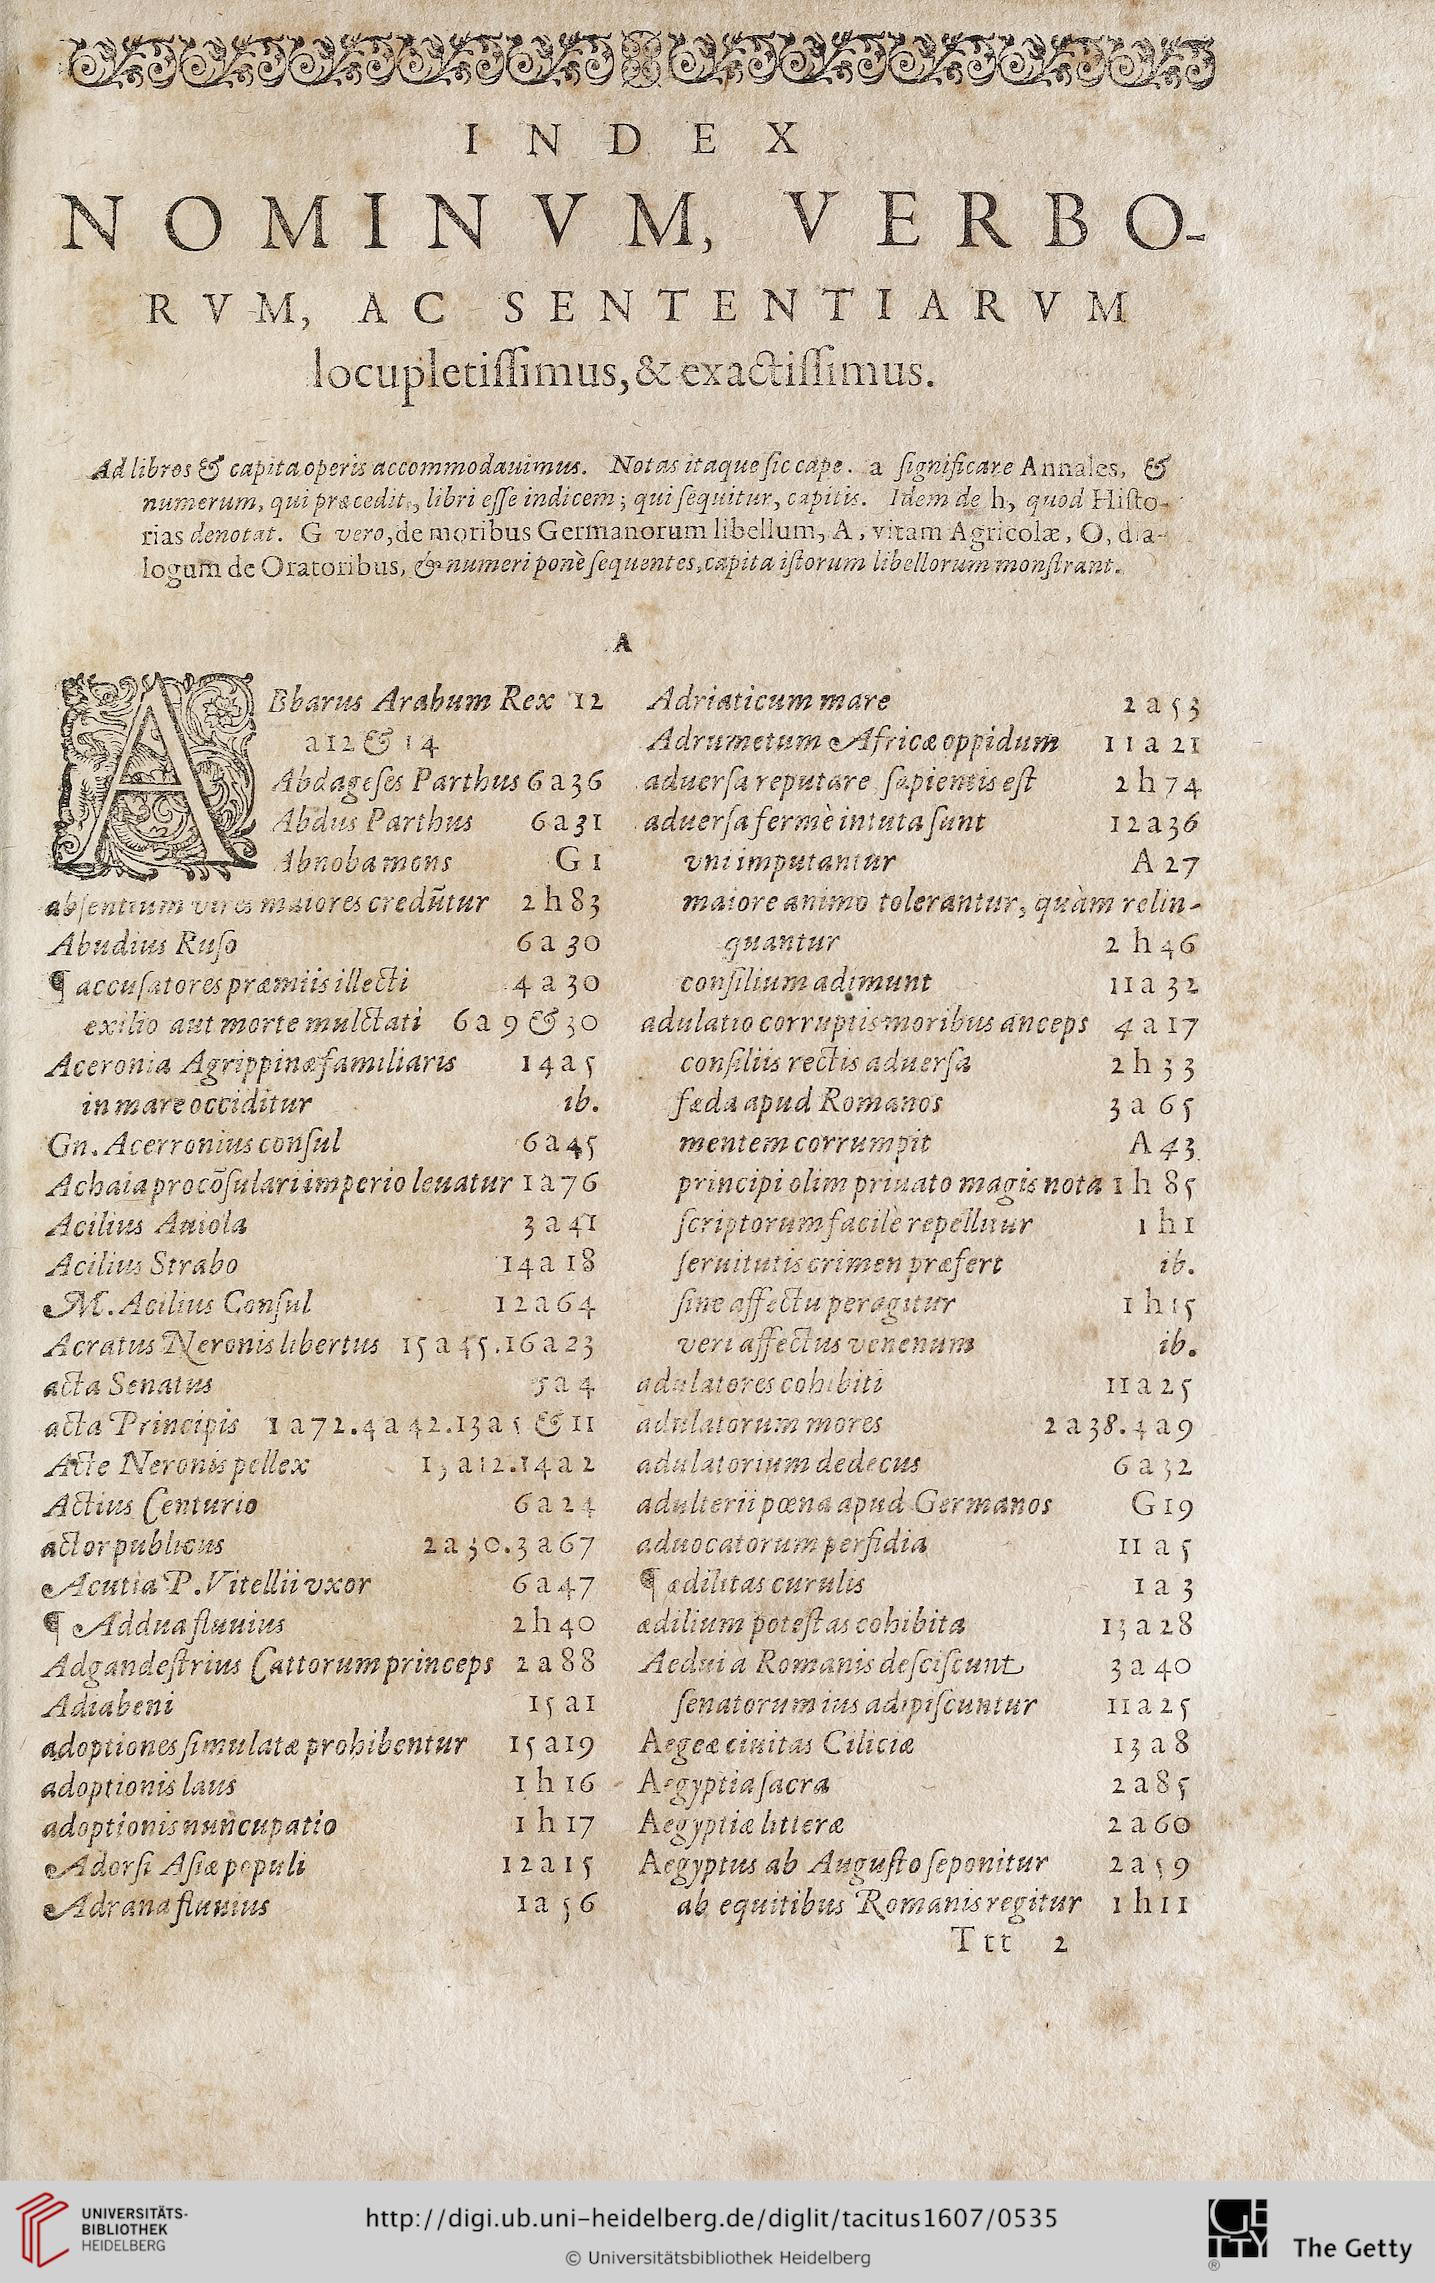 INDEX
NOMINVM, VERBO-
RVM, AC SENTENTIARVM
locupletiſſimus, & exactiſſimus.
Ad libros & capita operis accommodauimus. Notas itaque ſic cape. a ſignificare Annales, &
numerum, qui præcedit, libri eſſe indicem; qui ſequitur, capitis. Idem de h, quod Hiſto-
rias denotat. G vero, de moribus Germanorum libellum, A, vitam Agricolæ, O, dia-
logum de Oratoribus, & numeri ponè ſequentes, capita iſtorum libellorum monſtrant.
A
ABbarus Arabum Rex 12
a 12 & 14
Abdageſes Parthus 6 a 36
Abdus Parthus 6 a 31
Abnoba mons G 1
abſentium vires maiores credũtur 2 h 83
Abudius Ruſo 6 a 30
¶ accuſatores præmiis illecti 4 a 30
exilio aut morte mulctati 6 a 9 & 30
Aceronia Agrippinæ familiaris 14 a 5
in mare occiditur ib.
Gn. Acerronius conſul 6 a 45
Achaia procõſulari imperio leuatur 1 a 76
Acilius Auiola 3 a 41
Acilius Strabo 14 a 18
M. Acilius Conſul 12 a 64
Acratus Neronis libertus 15 a 45. 16 a 23
acta Senatus 5 a 4
acta Principis 1 a 72. 4 a 42. 13 a 5 & 11
Acte Neronis pellex 13 a 12. 14 a 2
Actius Centurio 6 a 24
actor publicus 2 a 30. 3 a 67
Acutia P. Vitellii vxor 6 a 47
¶ Addua fluuius 2 h 40
Adgandeſtrius Cattorum princeps 2 a 88
Adiabeni 15 a 1
adoptiones ſimulatæ prohibentur 15 a 19
adoptionis laus 1 h 16
adoptionis nuncupatio 1 h 17
Adorſi Aſiæ populi 12 a 15
Adrana fluuius 1 a 56
Adriaticum mare 2 a 53
Adrumetum Africæ oppidum 11 a 21
aduerſa reputare ſapientis eſt 2 h 74
aduerſa fermè intuta ſunt 12 a 36
vni imputantur A 27
maiore animo tolerantur, quàm relin-
quantur 2 h 46
conſilium adimunt 11 a 32
adulatio corruptis moribus anceps 4 a 17
conſiliis rectis aduerſa 2 h 33
fæda apud Romanos 3 a 65
mentem corrumpit A 43
principi olim priuato magis nota 1 h 85
ſcriptorum facilè repellitur 1 h 1
ſeruitutis crimen præfert ib.
ſine affectu peragitur 1 h 15
veri affectus venenum ib.
adulatores cohibiti 11 a 25
adulatorum mores 2 a 38. 4 a 9
adulatorium dedecus 6 a 32
adulterii pœna apud Germanos G 19
aduocatorum perfidia 11 a 5
¶ ædilitas curulis 1 a 3
ædilium poteſtas cohibita 13 a 28
Aedui à Romanis deſciſcunt 3 a 40
ſenatorum ius adipiſcuntur 11 a 25
Aegeæ ciuitas Ciliciæ 13 a 8
Aegyptia ſacra 2 a 85
Aegyptiæ litteræ 2 a 60
Aegyptus ab Auguſto ſeponitur 2 a 59
ab equitibus Romanis regitur 1 h 11
Ttt 2
UNIVERSITÄTS-
BIBLIOTHEK
HEIDELBERG
http://digi.ub.uni-heidelberg.de/diglit/tacitus1607/0535
© Universitätsbibliothek Heidelberg
GETTY
®
The Getty